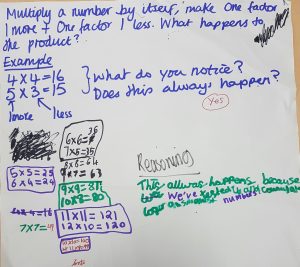 Multiply a number by itself, make one factor
1 more + One factor 1 less. What happens to
the product?
Example
4 x 4 = 16
5 x 3 = 15
1 more
1 less
What do you notice?
Does this always happen?
Yes
6x6= 36
7x5=35
8x8=64
9x7= 63
5x5=25
6x4=24
9x9=81
10x8=80
7x7=
11x11=121
12x10=120
Reasoning
This always happens because
we've tested
numbers